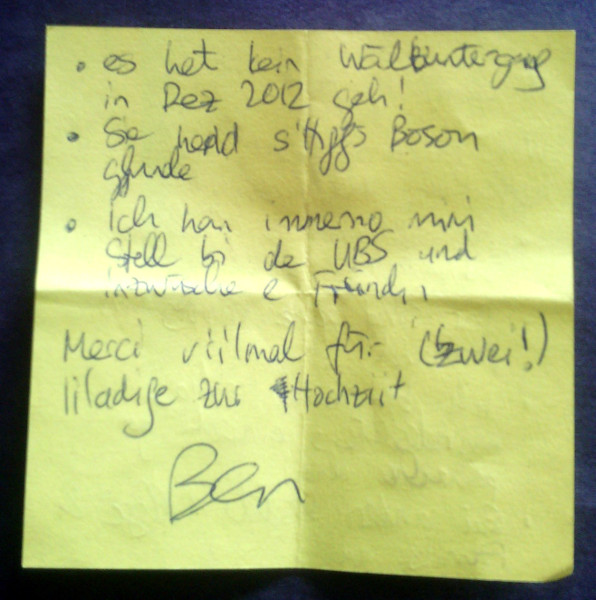 • es het kein Wältuntergang
in Dez 2012 geh!
• Sie hend s'Higgs Boson
gfunde
• Ich han immerno mini
Stell bi de UBS und
inzwüsche e Fründin
Merci viilmal für (zwei!)
Iiladige zur Hochziit
Ben